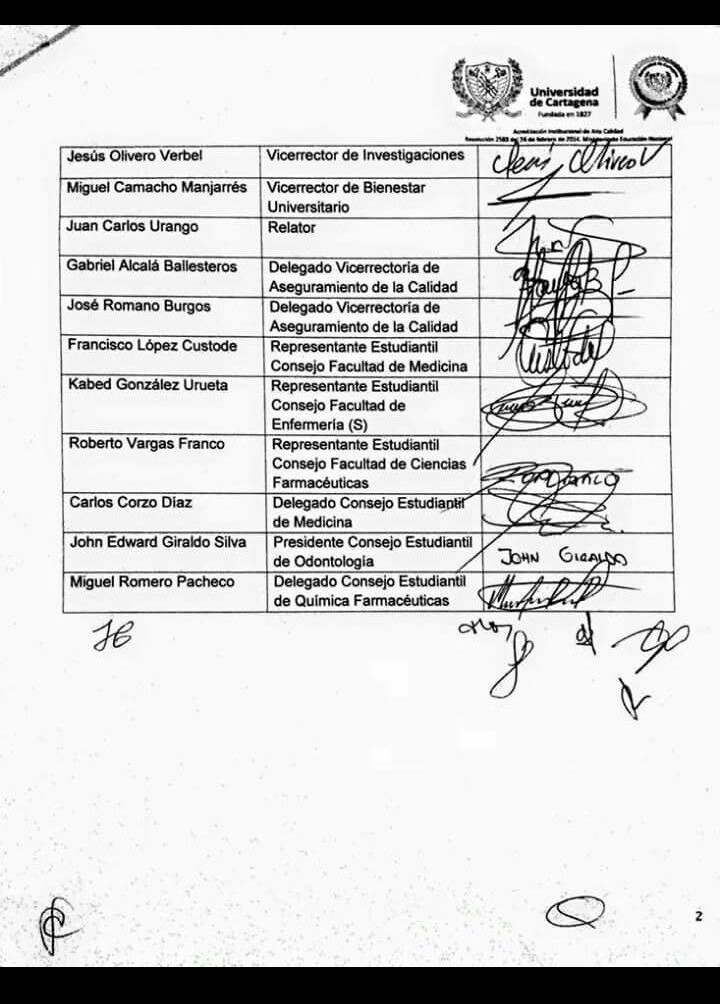 Universidad
de Cartagena
Fundada en 1827
Acreditación Institucional de Alta Calidad
Resolución 2583 del 26 de febrero de 2014. Ministerio de Educación Nacional
Jesús Olivero Verbel Vicerrector de Investigaciones Jesús Olivero V
Miguel Camacho Manjarrés Vicerrector de Bienestar
Universitario
Juan Carlos Urango Relator
Gabriel Alcalá Ballesteros Delegado Vicerrectoría de
Aseguramiento de la Calidad
José Romano Burgos Delegado Vicerrectoría de
Aseguramiento de la Calidad
Francisco López Custode Representante Estudiantil
Consejo Facultad de Medicina Custode
Kabed González Urueta Representante Estudiantil
Consejo Facultad de
Enfermería (S)
Roberto Vargas Franco Representante Estudiantil
Consejo Facultad de Ciencias
Farmacéuticas
Carlos Corzo Díaz Delegado Consejo Estudiantil
de Medicina
John Edward Giraldo Silva Presidente Consejo Estudiantil
de Odontología JOHN GIRALDO
Miguel Romero Pacheco Delegado Consejo Estudiantil
de Química Farmacéuticas
JG
2